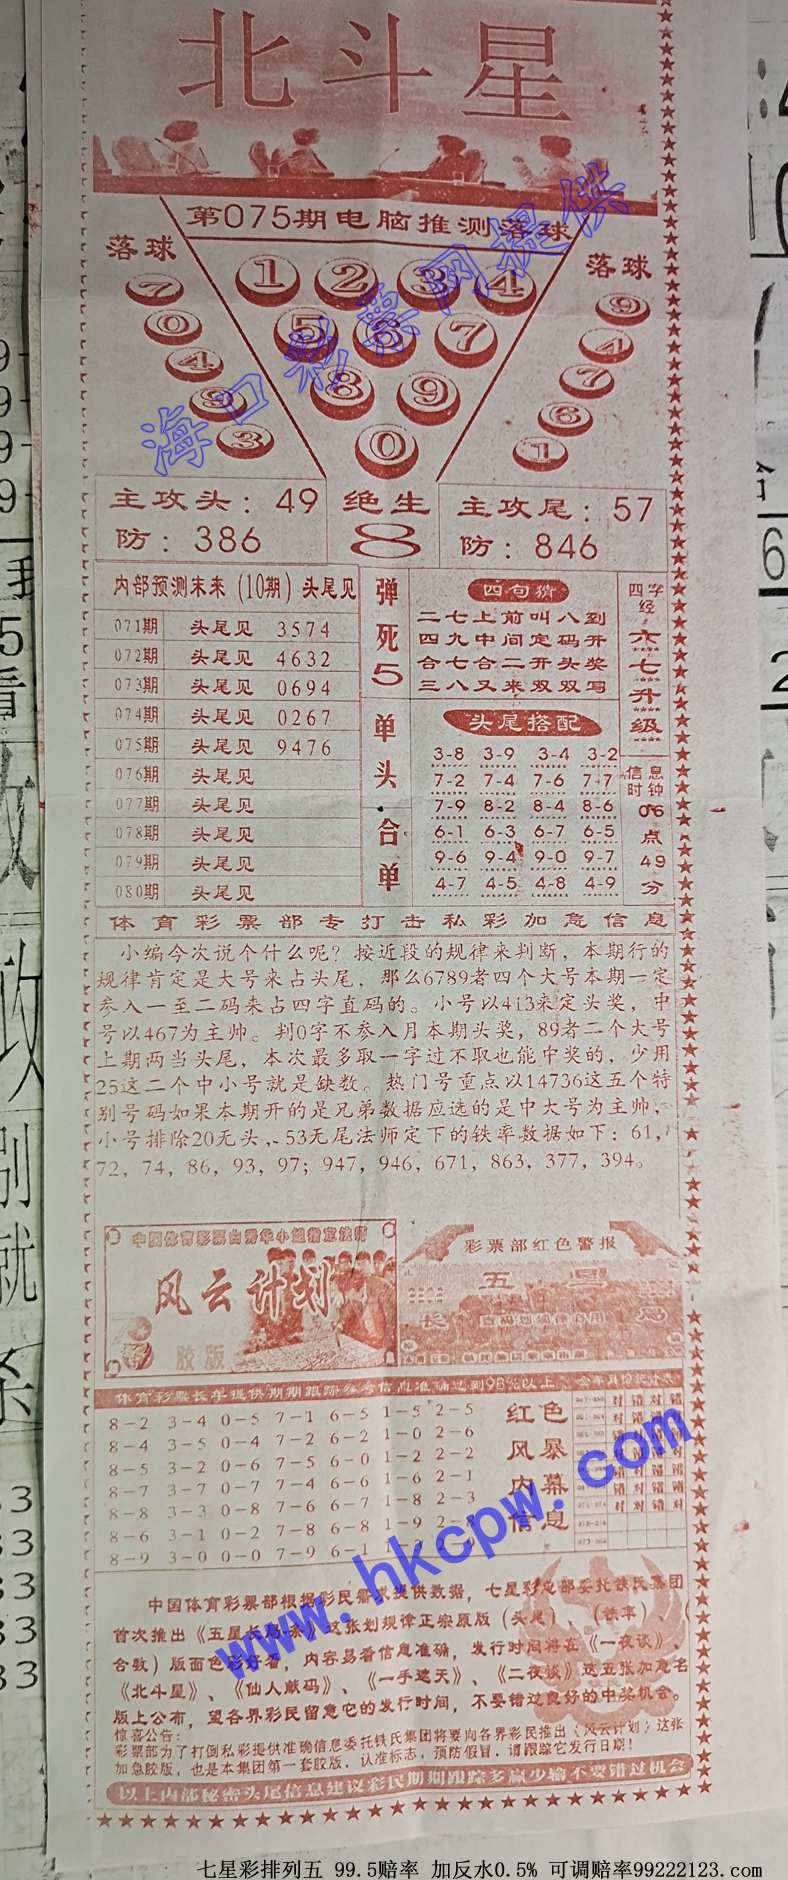 北斗星
第075期电脑推测落球
落球
落球
7
0
4
9
3
1 2 3 4
5 6 7
8 9
0
9
4
7
6
1
主攻头：49
防：386
绝生
8
主攻尾：57
防：846
内部预测末来（10期）头尾见
071期 头尾见 3574
072期 头尾见 4632
073期 头尾见 0694
074期 头尾见 0267
075期 头尾见 9476
076期 头尾见
077期 头尾见
078期 头尾见
079期 头尾见
080期 头尾见
弹死5
单头
合单
四句猜
二七上前叫八到
四九中间定码开
合七合二开头奖
三八又来双双写
头尾搭配
3-8 3-9 3-4 3-2
7-2 7-4 7-6 7-7
7-9 8-2 8-4 8-6
6-1 6-3 6-7 6-5
9-6 9-4 9-0 9-7
4-7 4-5 4-8 4-9
四字经
六七升级
信息时钟
06点49分
体育彩票部专打击私彩加急信息
小编今次说个什么呢？按近段的规律来判断，本期行的
规律肯定是大号来占头尾，那么6789者四个大号本期一定
参入一至二码来占四字直码的。小号以413来定头奖，中
号以467为主帅。判0字不参入月本期头奖，89者二个大号
上期两当头尾，本次最多取一字过不取也能中奖的，少用
25这二个中小号就是缺数。热门号重点以14736这五个特
别号码如果本期开的是兄弟数据应选的是中大号为主帅，
小号排除20无头，53无尾法师定下的铁率数据如下：61，
72，74，86，93，97；947，946，671，863，377，394。
风云计划
胶版
彩票部红色警报
五星
长 局
体育彩票长年提供期期跟踪参考信息准确达到98%以上
8-2 3-4 0-5 7-1 6-5 1-5 2-5
8-4 3-5 0-4 7-2 6-2 1-0 2-6
8-5 3-2 0-6 7-5 6-0 1-2 2-2
8-7 3-7 0-7 7-4 6-6 1-6 2-1
8-8 3-3 0-8 7-6 6-7 1-8 2-3
8-6 3-1 0-2 7-8 6-8 1-9 2-8
8-9 3-0 0-0 7-9 6-1
红色
风暴
内幕
信息
对 错 对 错
中国体育彩票部根据彩民需求提供数据，七星彩总部委托铁氏集团
首次推出《五星长局-条》这张划规律正宗原版（头尾）、（铁率）、（
合数）版面色彩好看，内容易看信息准确，发行时间将在《一夜谈》、
《北斗星》、《仙人献码》、《一手遮天》、《二夜谈》这五张加急名
版上公布，望各界彩民留意它的发行时间，不要错过良好的中奖机会。
惊喜公告：
彩票部为了打倒私彩提供准确信息委托铁氏集团将要向各界彩民推出《风云计划》这张
加急胶版，也是本集团第一套胶版，认准标志，预防假冒，请跟踪它发行日期！
以上内部秘密头尾信息建议彩民期期跟踪多赢少输不要错过机会
海口彩票网提供
www.hkcpw.com
七星彩排列五 99.5赔率 加反水0.5% 可调赔率99222123.com